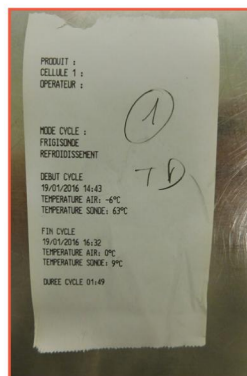 PRODUIT :
CELLULE 1 :
OPERATEUR :
1
MODE CYCLE :
FRIGISONDE
REFROIDISSEMENT
TD
DEBUT CYCLE
19/01/2016 14:43
TEMPERATURE AIR: -6°C
TEMPERATURE SONDE: 63°C
FIN CYCLE
19/01/2016 16:32
TEMPERATURE AIR: 0°C
TEMPERATURE SONDE: 9°C
DUREE CYCLE 01:49